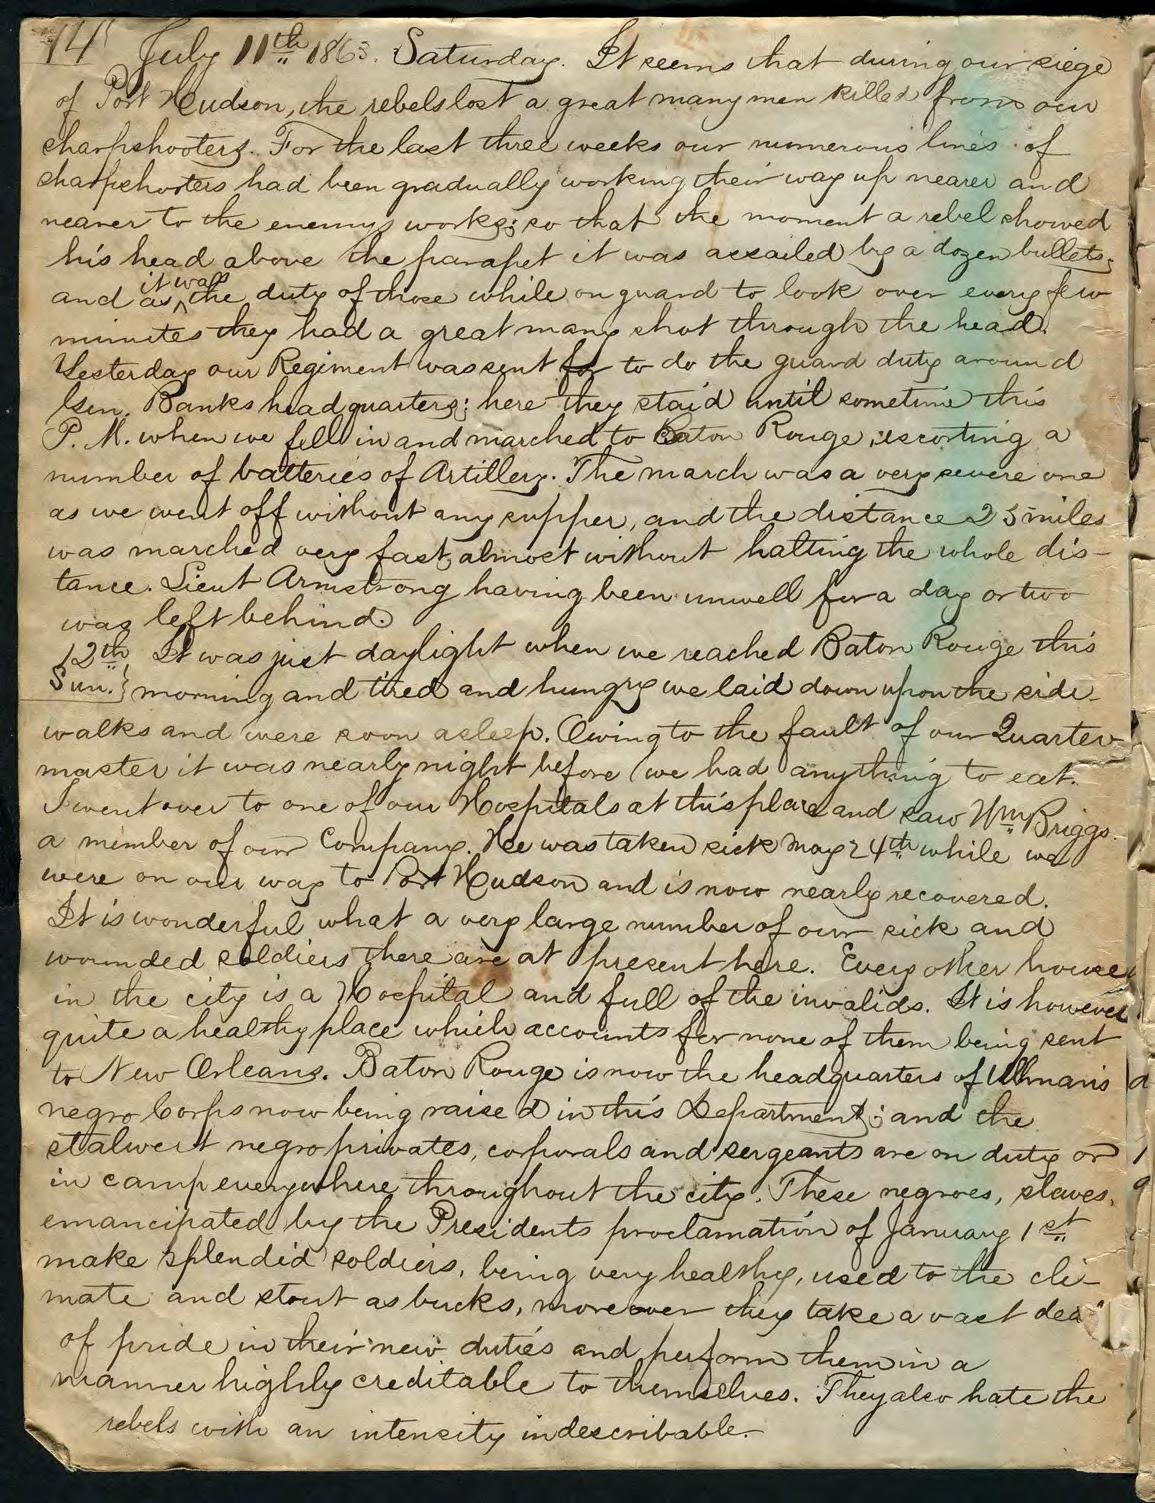 14 July 11th 1863. Saturday. It seems that during our siege
of Port Hudson, the rebels lost a great many men killed from our
sharpshooters. For the last three weeks our numerous lines of
sharpshooters had been gradually working their way up nearer and
nearer to the enemys works; so that the moment a rebel showed
his head above the parapet it was assailed by a dozen bullets;
and as it was the duty of those while on guard to look over every few
minutes they had a great many shot through the head.
Yesterday our Regiment was sent for to do the guard duty around
Gen. Banks headquarters; here they staid until sometime this
P. M. when we fell in and marched to Baton Rouge, escorting a
number of batteries of Artillery. The march was a very severe one
as we went off without any supper, and the distance 25 miles
was marched very fast, almost without halting the whole dis-
tance. Lieut Armstrong having been unwell for a day or two
was left behind.
12th It was just daylight when we reached Baton Rouge this
Sun. } morning and tired and hungry we laid down upon the side-
walks and were soon asleep. Owing to the fault of our Quarter-
master it was nearly night before we had anything to eat.
I went over to one of our Hospitals at this place and saw Wm Briggs.
a member of our Company. Hee was taken sick May 24th while we
were on our way to Port Hudson and is now nearly recovered.
It is wonderful what a very large number of our sick and
wounded soldiers there are at present here. Every other house
in the city is a Hospital and full of the invalids. It is however
quite a healthy place which accounts for none of them being sent
to New Orleans. Baton Rouge is now the headquarters of Ullman's
negro Corps now being raised in this Department; and the
stalwert negro privates, corporals and sergeants are on duty or
in camp everywhere throughout the city. These negroes, slaves,
emancipated by the Presidents proclamation of January 1st
make splendid soldiers, being very healthy, used to the cli-
mate and stout as bucks, moreover they take a vast deal
of pride in their new duties and perform them in a
manner highly creditable to themselves. They also hate the
rebels with an intensity indescribable.